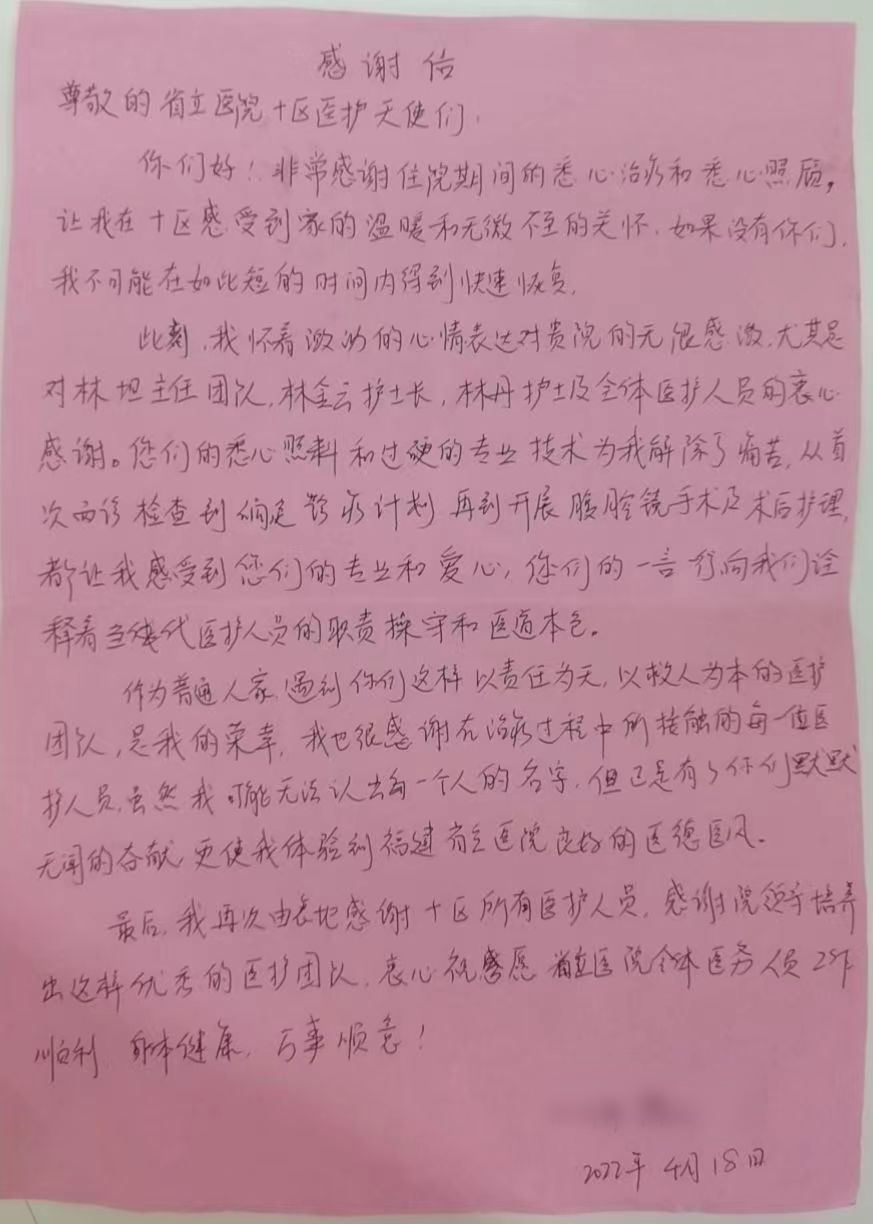 感谢信
尊敬的省立医院十区医护天使们:
你们好！非常感谢住院期间的悉心治疗和悉心照顾,
让我在十区感受到家的温暖和无微不至的关怀.如果没有你们,
我不可能在如此短的时间内得到快速恢复.
此刻,我怀着激动的心情表达对贵院的无限感激,尤其是
对林坦主任团队,林金云护士长,林丹护士及全体医护人员的衷心
感谢。您们的悉心照料和过硬的专业技术为我解除了痛苦,从首
次面诊检查到制定诊疗计划再到开展腹腔镜手术及术后护理,
都让我感受到您们的专业和爱心,你们的一言行向我们诠
释着当代医护人员的职责操守和医道本色。
作为普通人家,遇到你们这样以责任为天,以救人为本的医护
团队,是我的荣幸,我也很感谢在治疗过程中所接触的每一位医
护人员,虽然我可能无法认出每一个人的名字,但正是有了你们默默
无闻的奉献更使我体验到福建省立医院良好的医德医风.
最后,我再次由衷地感谢十区所有医护人员,感谢院领导培养
出这样优秀的医护团队,衷心祝愿省立医院全体医务人员工作
顺利,身体健康,万事顺意！
2022年4月18日